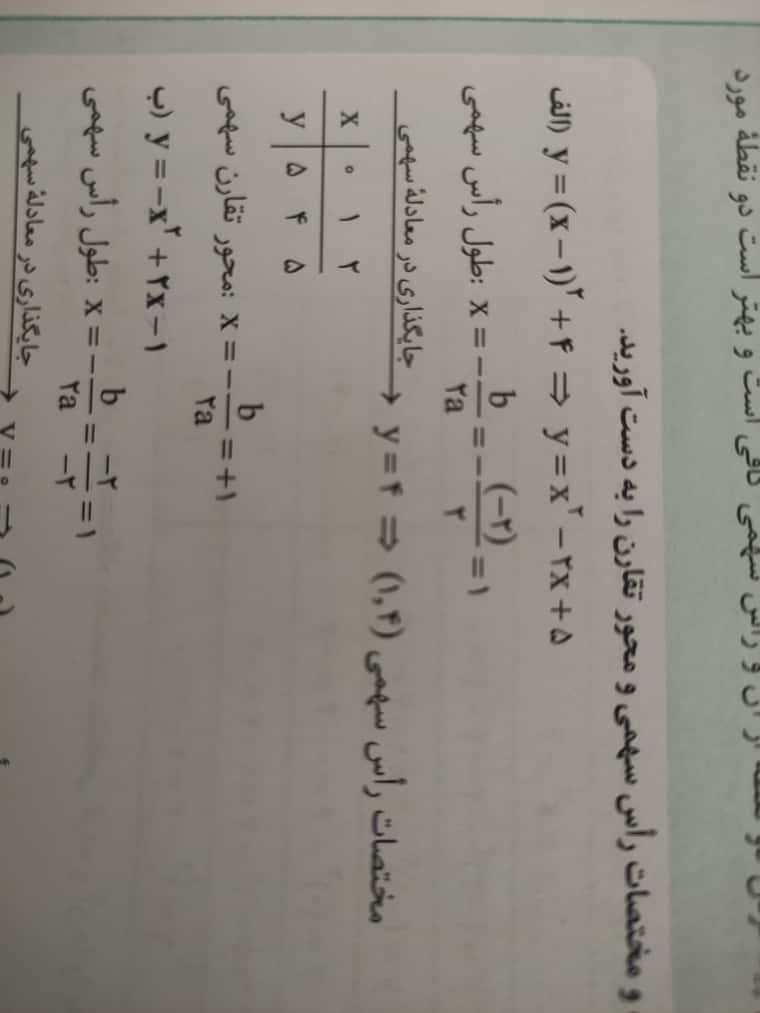 است و بهتر است دو نقطهٔ مورد
و مختصات رأس سهمی و محور تقارن را به دست آورید.
الف) y = (x − ۱)^۲ + ۴ ⇒ y = x^۲ − ۲x + ۵
طول رأس سهمی: x = − b/۲a = − (−۲)/۲ = ۱
جایگذاری در معادلهٔ سهمی → y = ۴ ⇒ (۱,۴) مختصات رأس سهمی
x ۰ ۱ ۲
y ۵ ۴ ۵
محور تقارن سهمی: x = − b/۲a = +۱
ب) y = −x^۲ + ۲x − ۱
طول رأس سهمی: x = − b/۲a = −۲/−۲ = ۱
جایگذاری در معادلهٔ سهمی → y = ۰ ⇒